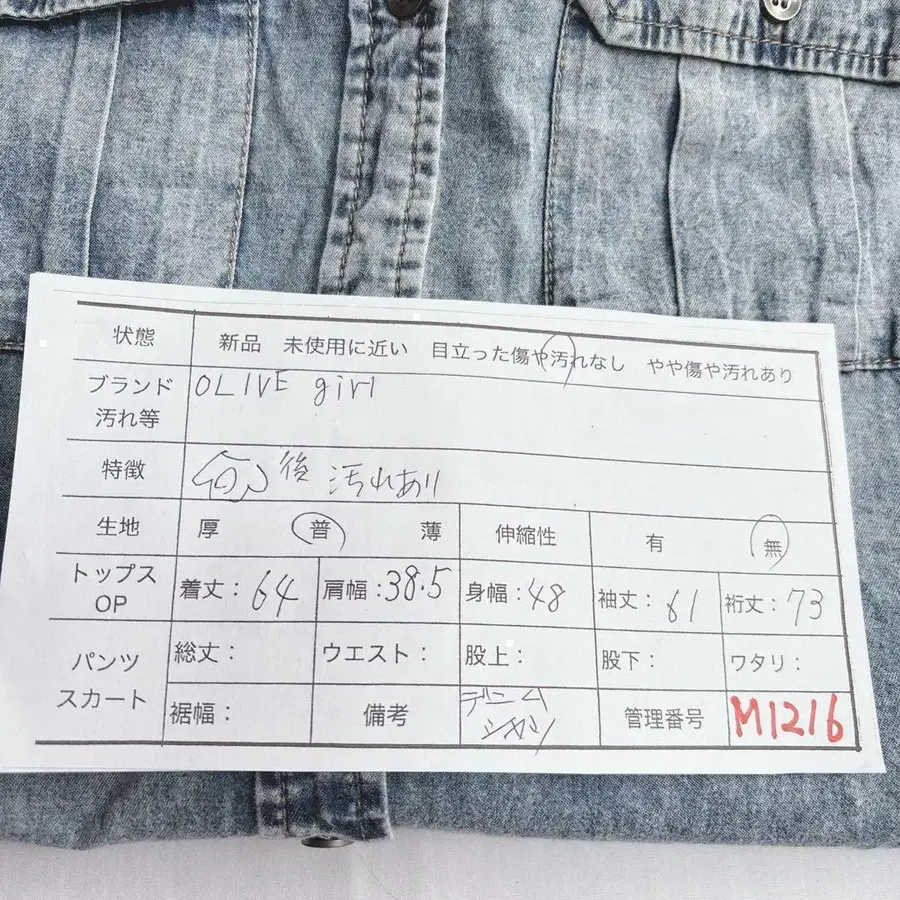 状態 新品 未使用に近い 目立った傷や汚れなし やや傷や汚れあり
ブランド OLIVE girl
汚れ等
特徴 後 汚れあり
生地 厚 普 薄 伸縮性 有 無
トップス OP 着丈:64 肩幅:38.5 身幅:48 袖丈:61 裄丈:73
パンツ スカート 総丈: ウエスト: 股上: 股下: ワタリ:
裾幅: 備考 デニム シャツ 管理番号 M1216